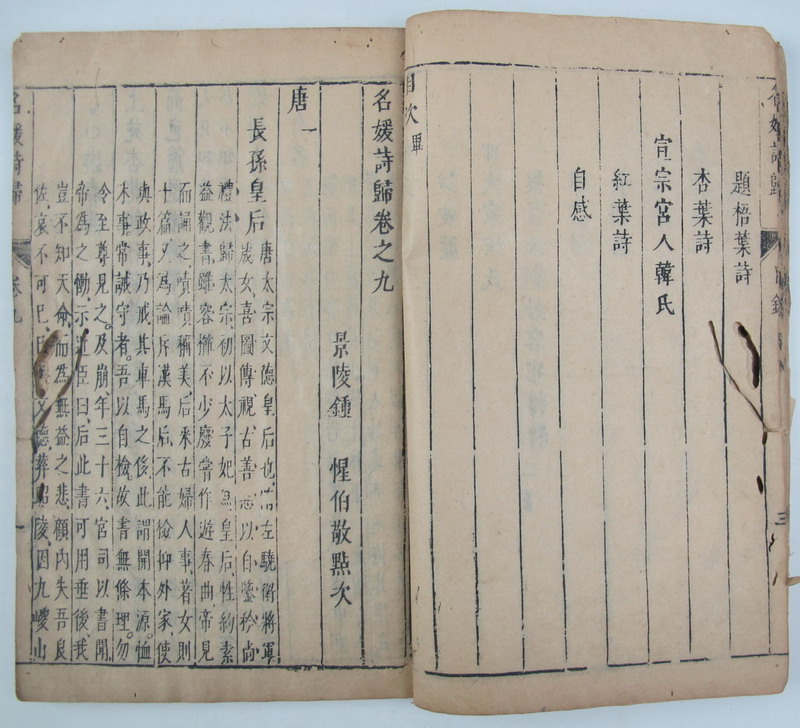 名媛詩歸 目錄 三
題梧葉詩
杏葉詩
宣宗宮人韓氏
紅葉詩
自感
目次畢
名媛詩歸卷之九
景陵鍾 惺伯敬點次
唐一
長孫皇后
唐太宗文德皇后也 左驍衛將軍
晟女喜圖傳視古善惡以自鑒矜尚
禮法歸太宗初以太子妃為皇后性約素
益觀書雖容櫛不少廢嘗作遊春曲帝見
而誦之嘖嘖稱美后采古婦人事著女則
十篇又為論斥漢馬后不能檢抑外家使
與政事乃戒其車馬之侈此謂開本源恤
末事常誡守者。吾以自檢故書無條理。勿
令至尊見之。及崩年三十六宮司以書聞
帝為之慟示近臣曰后此書可用垂後我
豈不知天命而為無益之悲顧內失吾良
佐哀不可已 文德葬昭陵因九嵕山
名媛詩歸 卷九 一